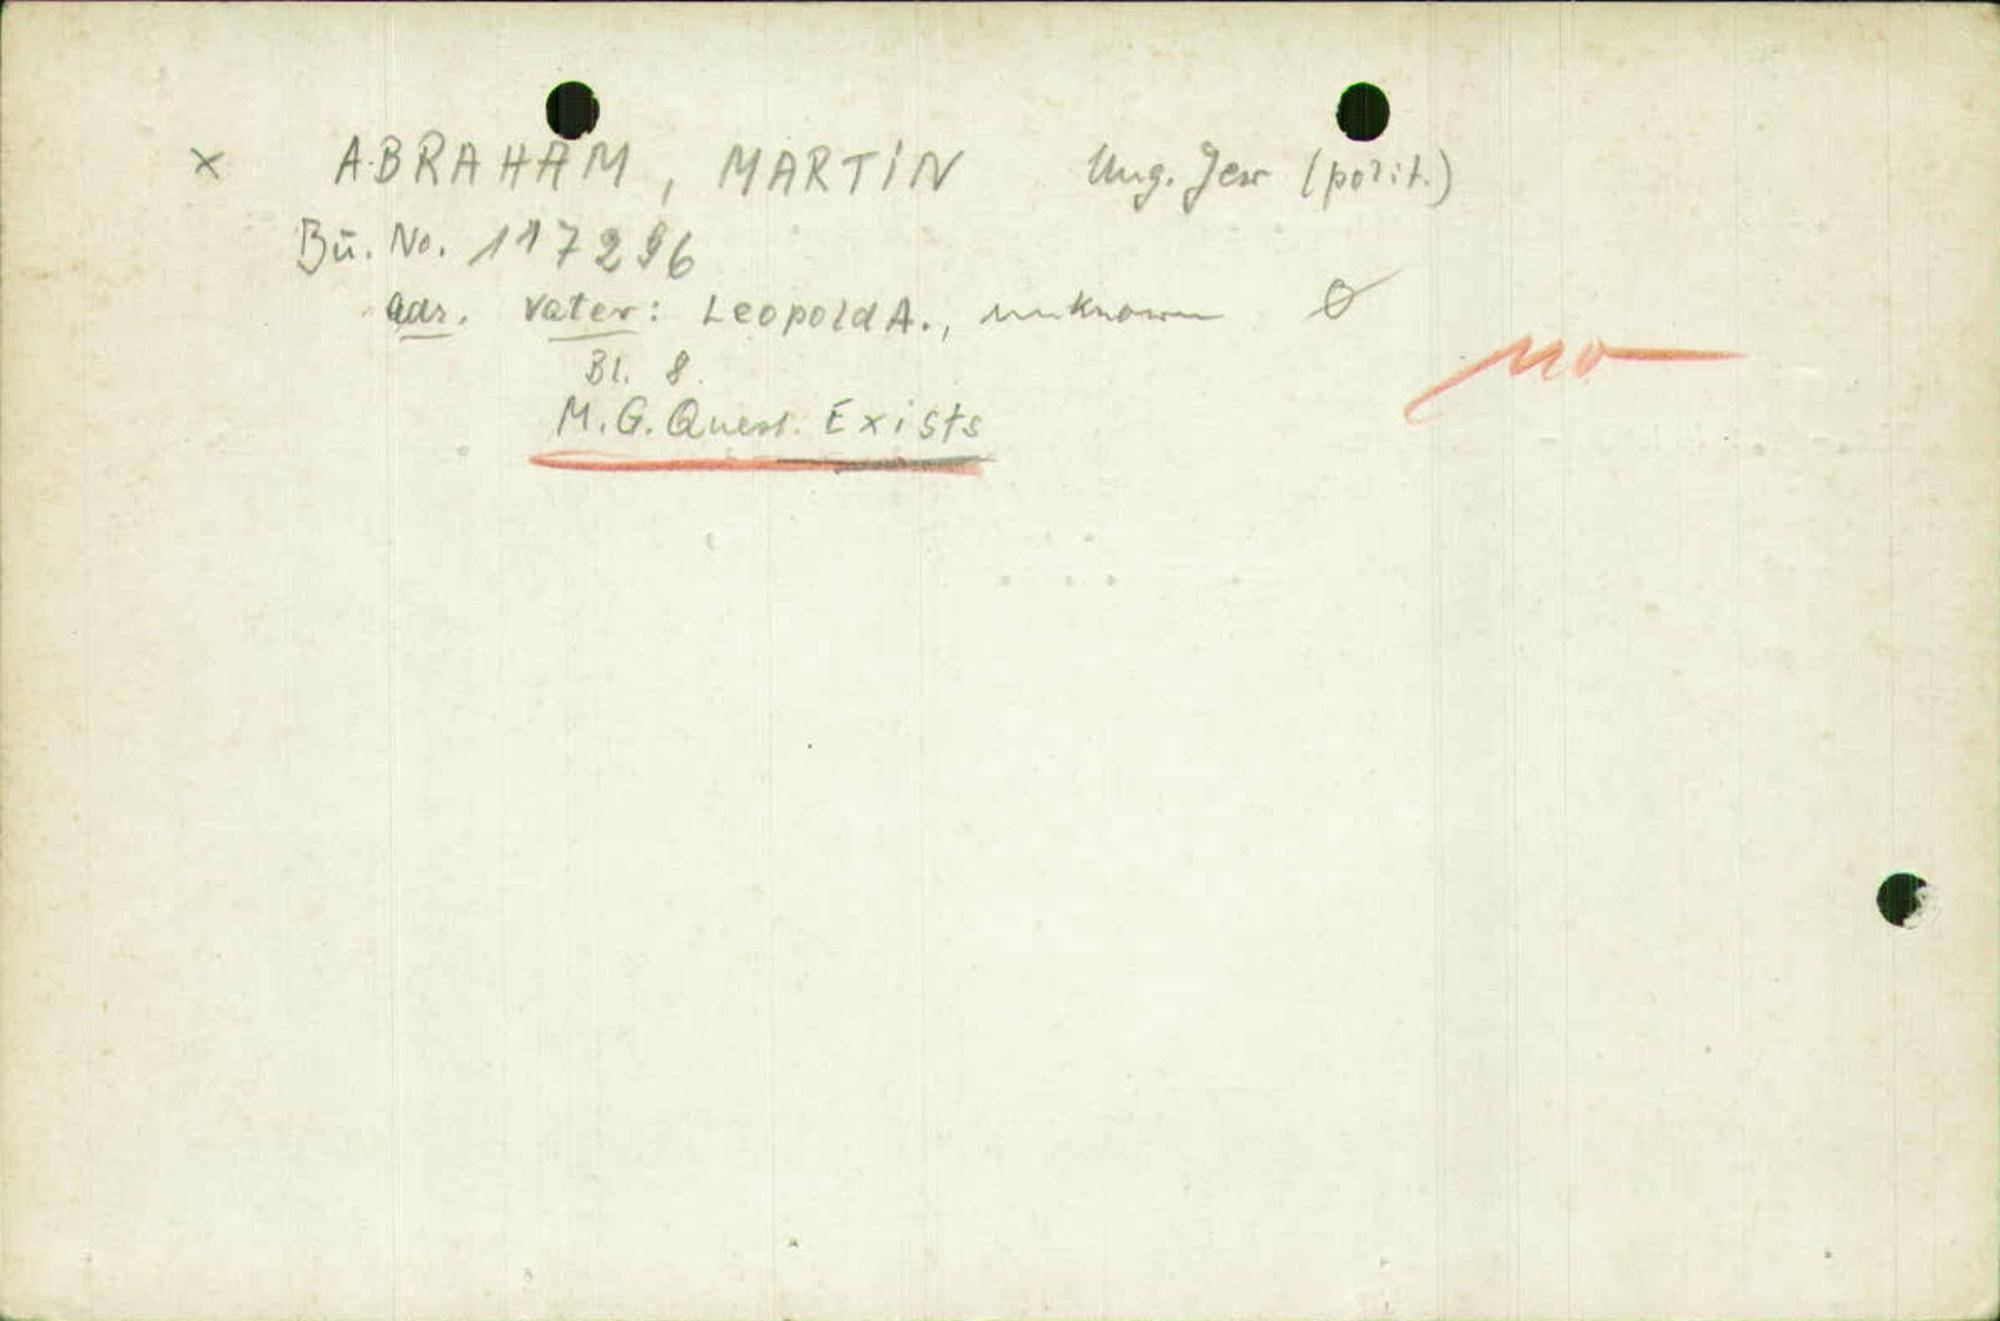 x ABRAHAM, MARTIN Ung. Jew (polit.)
Bu. No. 117296
adr. Vater: Leopold A., unknown
Bl. 8.
M.G. Quest. Exists
no